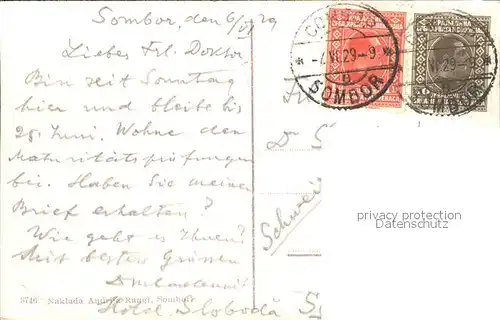 Sombor, den 6/VI 29
Liebes Frl. Doktor,
Bin seit Sonntag
hier und bleibe bis
28 Juni. Wohne den
Maturitätsprüfungen
bei. Haben Sie meinen
Brief erhalten?
Wie geht es Ihnen?
Mit besten Grüssen
Hotel Sloboda
3746 Nakluda Sombor
СОМБОР
-7.VI.29-9
SOMBOR
VI.29-9
Schweiz
privacy protection
Datenschutz